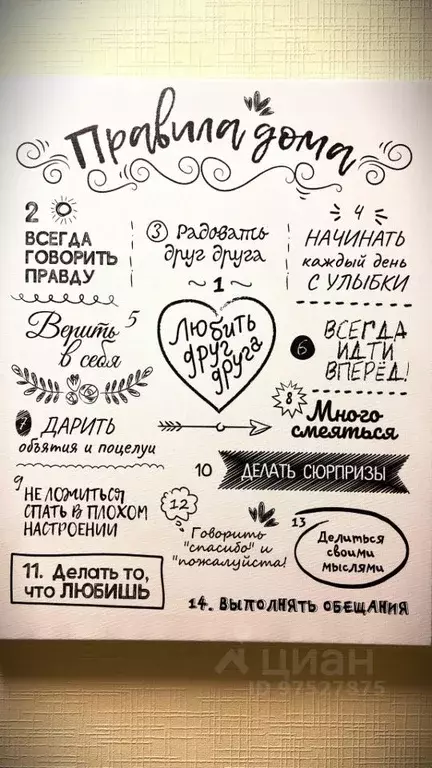 Правила дома
2
ВСЕГДА
ГОВОРИТЬ
ПРАВДУ
3 Радовать
друг друга
4
НАЧИНАТЬ
каждый день
С УЛЫБКИ
~ 1 ~
Любить
друг
друга
Верить 5
в себя
6
ВСЕГДА
ИДТИ
ВПЕРЁД!
7 ДАРИТЬ
объятия и поцелуи
8
Много
смеяться
9
НЕ ЛОЖИТЬСЯ
СПАТЬ В ПЛОХОМ
НАСТРОЕНИИ
10 ДЕЛАТЬ СЮРПРИЗЫ
11. Делать то,
что ЛЮБИШЬ
12
Говорить
"спасибо" и
"пожалуйста!
13
Делиться
своими
мыслями
14. ВЫПОЛНЯТЬ ОБЕЩАНИЯ
циан
ID 97527875